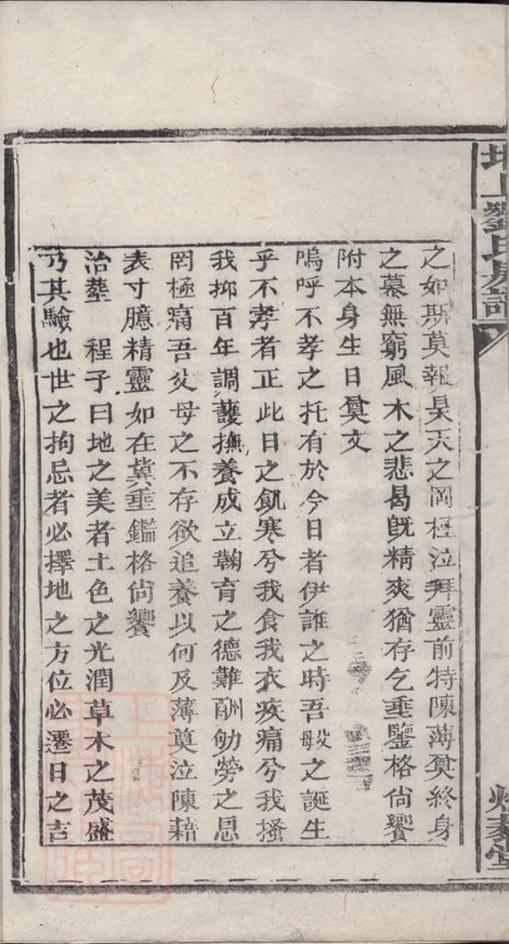 上劉氏房譜
之如斯莫報昊天之罔極泣拜靈前特陳薄奠終身
之慕無窮風木之悲曷旣精爽猶存乞垂鑒格尙饗
附本身生日奠文
嗚呼不孝之托有於今日者伊誰之時吾母之誕生
乎不孝者正此日之飢寒兮我食我衣疾痛兮我搔
我抑百年調護撫養成立鞠育之德難酬劬勞之恩
罔極痛吾父母之不存欲追養以何及薄奠泣陳藉
表寸臆精靈如在冀垂鑑格尙饗
治塟 程子曰地之美者土色之光潤草木之茂盛
乃其驗也世之拘忌者必擇地之方位必遷日之吉